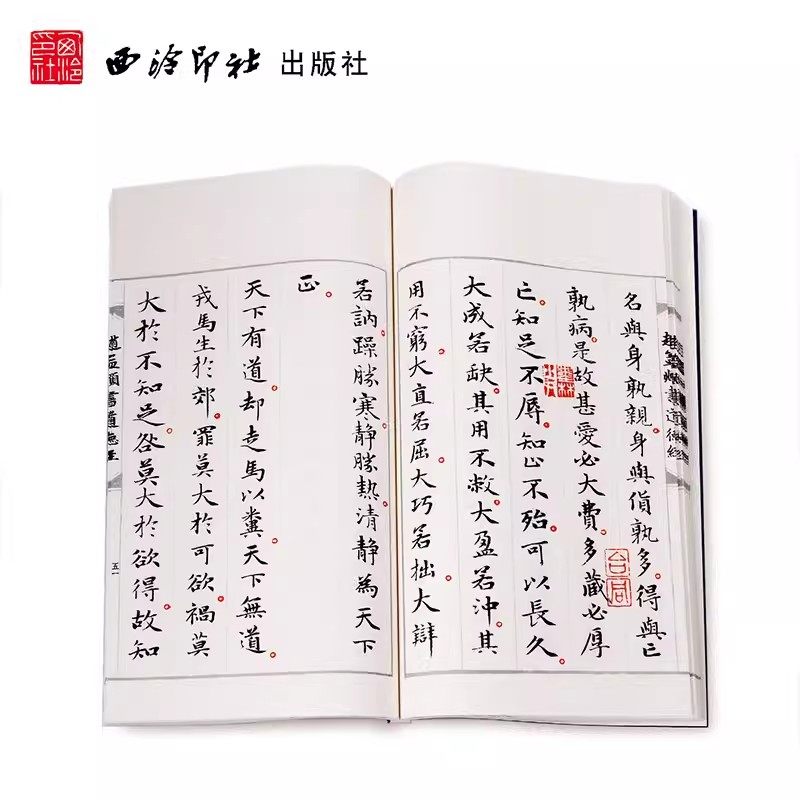 西泠印社
西泠印社 出版社
名與身孰親身與貨孰多得與亡
孰病是故甚愛必大費多藏必厚
亡知足不辱知止不殆可以長久
大成若缺其用不敝大盈若沖其
用不窮大直若屈大巧若拙大辯
若訥躁勝寒靜勝熱清靜為天下
正
天下有道却走馬以糞天下無道
戎馬生於郊罪莫大於可欲禍莫
大於不知足咎莫大於欲得故知
趙孟頫書道德經
五一